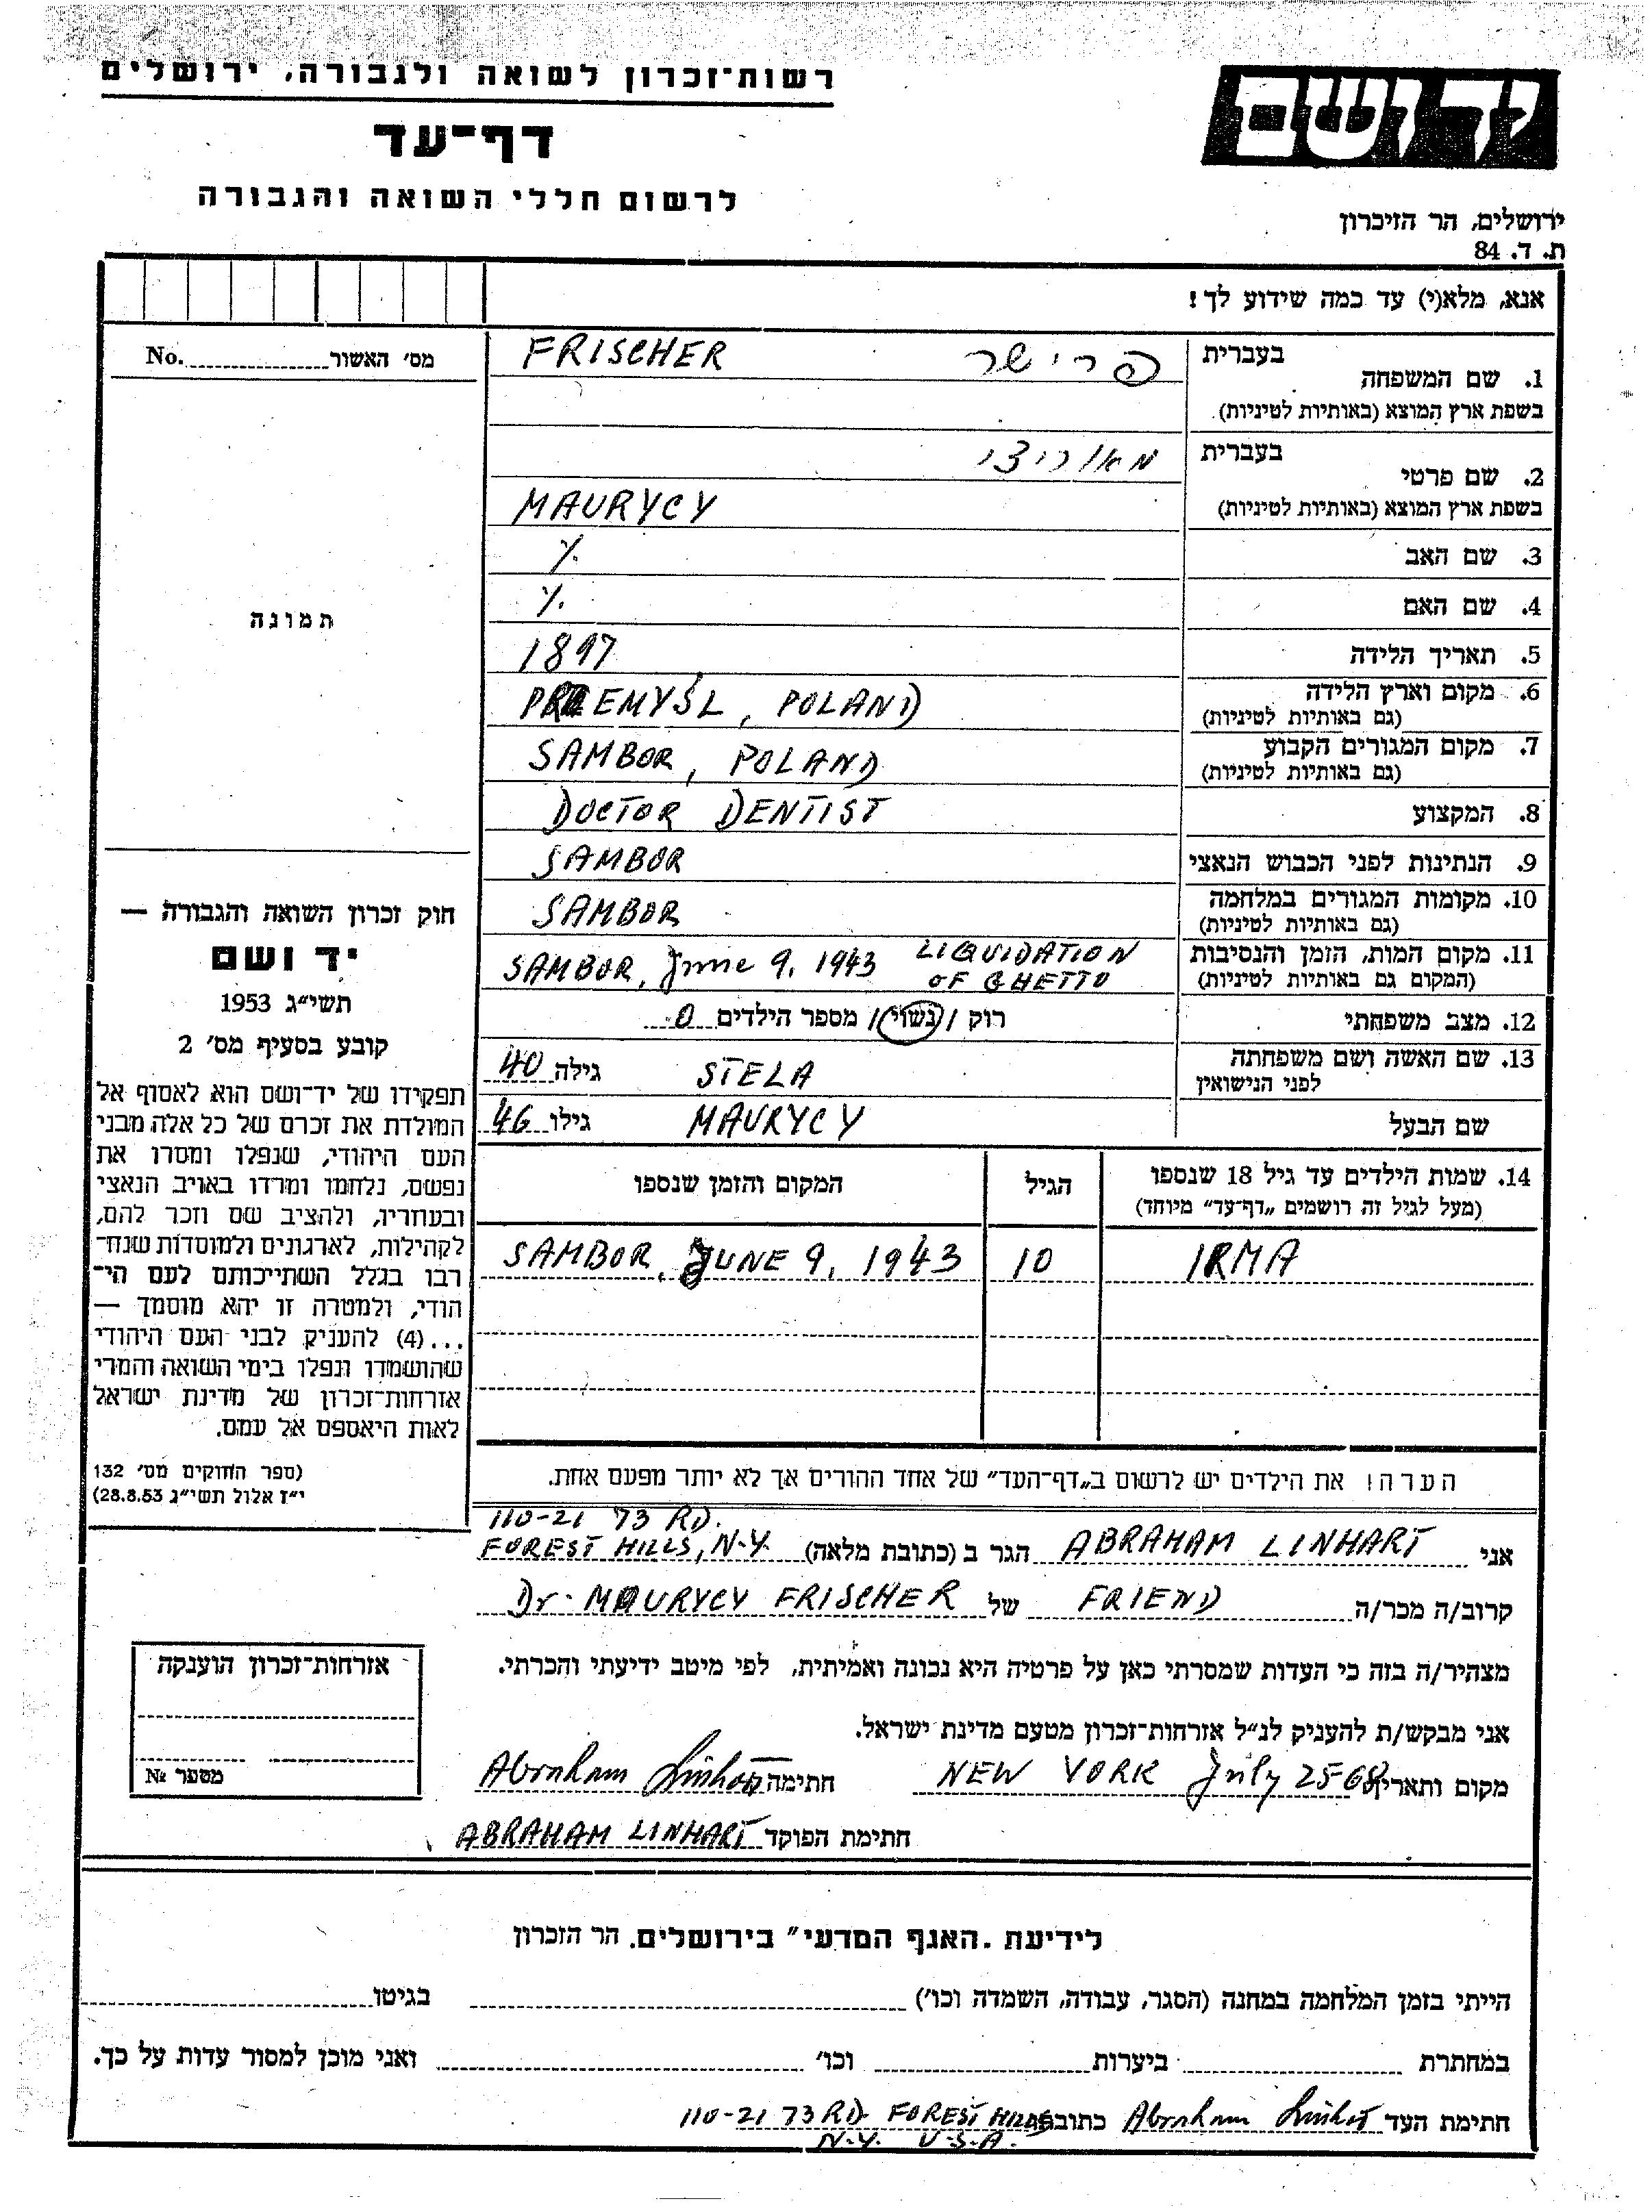 רשות־זכרון לשואה ולגבורה, ירושלים
דף־עד
לרשום חללי השואה והגבורה
יד ושם
ירושלים, הר הזיכרון
ת. ד. 84
אנא, מלא(י) עד כמה שידוע לך!
מס׳ האשור No.
תמונה
חוק זכרון השואה והגבורה —
יד ושם
תשי״ג 1953
קובע בסעיף מס׳ 2
תפקידו של יד־ושם הוא לאסוף אל
המולדת את זכרם של כל אלה מבני
העם היהודי, שנפלו ומסרו את
נפשם, נלחמו ומרדו באויב הנאצי
ובעוזריו, ולהציב שם וזכר להם,
לקהילות, לארגונים ולמוסדות שנח־
רבו בגלל השתייכותם לעם הי־
הודי, ולמטרה זו יהא מוסמך —
...(4) להעניק לבני העם היהודי
שהושמדו ונפלו בימי השואה והמרי
אזרחות־זכרון של מדינת ישראל
לאות היאספם אל עמם.
(ספר החוקים מס׳ 132
י״ז אלול תשי״ג 28.8.53)
1. שם המשפחה בעברית פרישר FRISCHER
בשפת ארץ המוצא (באותיות לטיניות)
2. שם פרטי בעברית מאוריצי
בשפת ארץ המוצא (באותיות לטיניות) MAURYCY
3. שם האב ٪
4. שם האם ٪
5. תאריך הלידה 1897
6. מקום וארץ הלידה PRZEMYŚL, POLAND
(גם באותיות לטיניות)
7. מקום המגורים הקבוע SAMBOR, POLAND
(גם באותיות לטיניות)
8. המקצוע DOCTOR DENTIST
9. הנתינות לפני הכבוש הנאצי SAMBOR
10. מקומות המגורים במלחמה SAMBOR
(גם באותיות לטיניות)
11. מקום המות, הזמן והנסיבות SAMBOR, June 9, 1943 LIQUIDATION OF GHETTO
(המקום גם באותיות לטיניות)
12. מצב משפחתי רוק / נשוי / מספר הילדים 0
13. שם האשה ושם משפחתה STELA גילה 40
לפני הנישואין
שם הבעל MAURYCY גילו 46
14. שמות הילדים עד גיל 18 שנספו הגיל המקום והזמן שנספו
(מעל לגיל זה רושמים „דף־עד״ מיוחד)
IRMA 10 SAMBOR, JUNE 9, 1943
הערה! את הילדים יש לרשום ב„דף־העד״ של אחד ההורים אך לא יותר מפעם אחת.
110-21 73 RD.
אני ABRAHAM LINHART הגר ב (כתובת מלאה) FOREST HILLS, N.Y.
קרוב/ה מכר/ה FRIEND של Dr. MAURYCY FRISCHER
מצהיר/ה בזה כי העדות שמסרתי כאן על פרטיה היא נכונה ואמיתית, לפי מיטב ידיעתי והכרתי.
אני מבקש/ת להעניק לנ״ל אזרחות־זכרון מטעם מדינת ישראל.
מקום ותאריך NEW YORK July 25-68 חתימה Abraham Linhart
חתימת הפוקד ABRAHAM LINHART
אזרחות־זכרון הוענקה
מספר №
לידיעת „האגף המדעי״ בירושלים. הר הזכרון
הייתי בזמן המלחמה במחנה (הסגר, עבודה, השמדה וכו׳) בגיטו
במחתרת ביערות וכו׳ ואני מוכן למסור עדות על כך.
חתימת העד Abraham Linhart כתובת 110-21 73 RD. FOREST HILLS
N.Y. U.S.A.